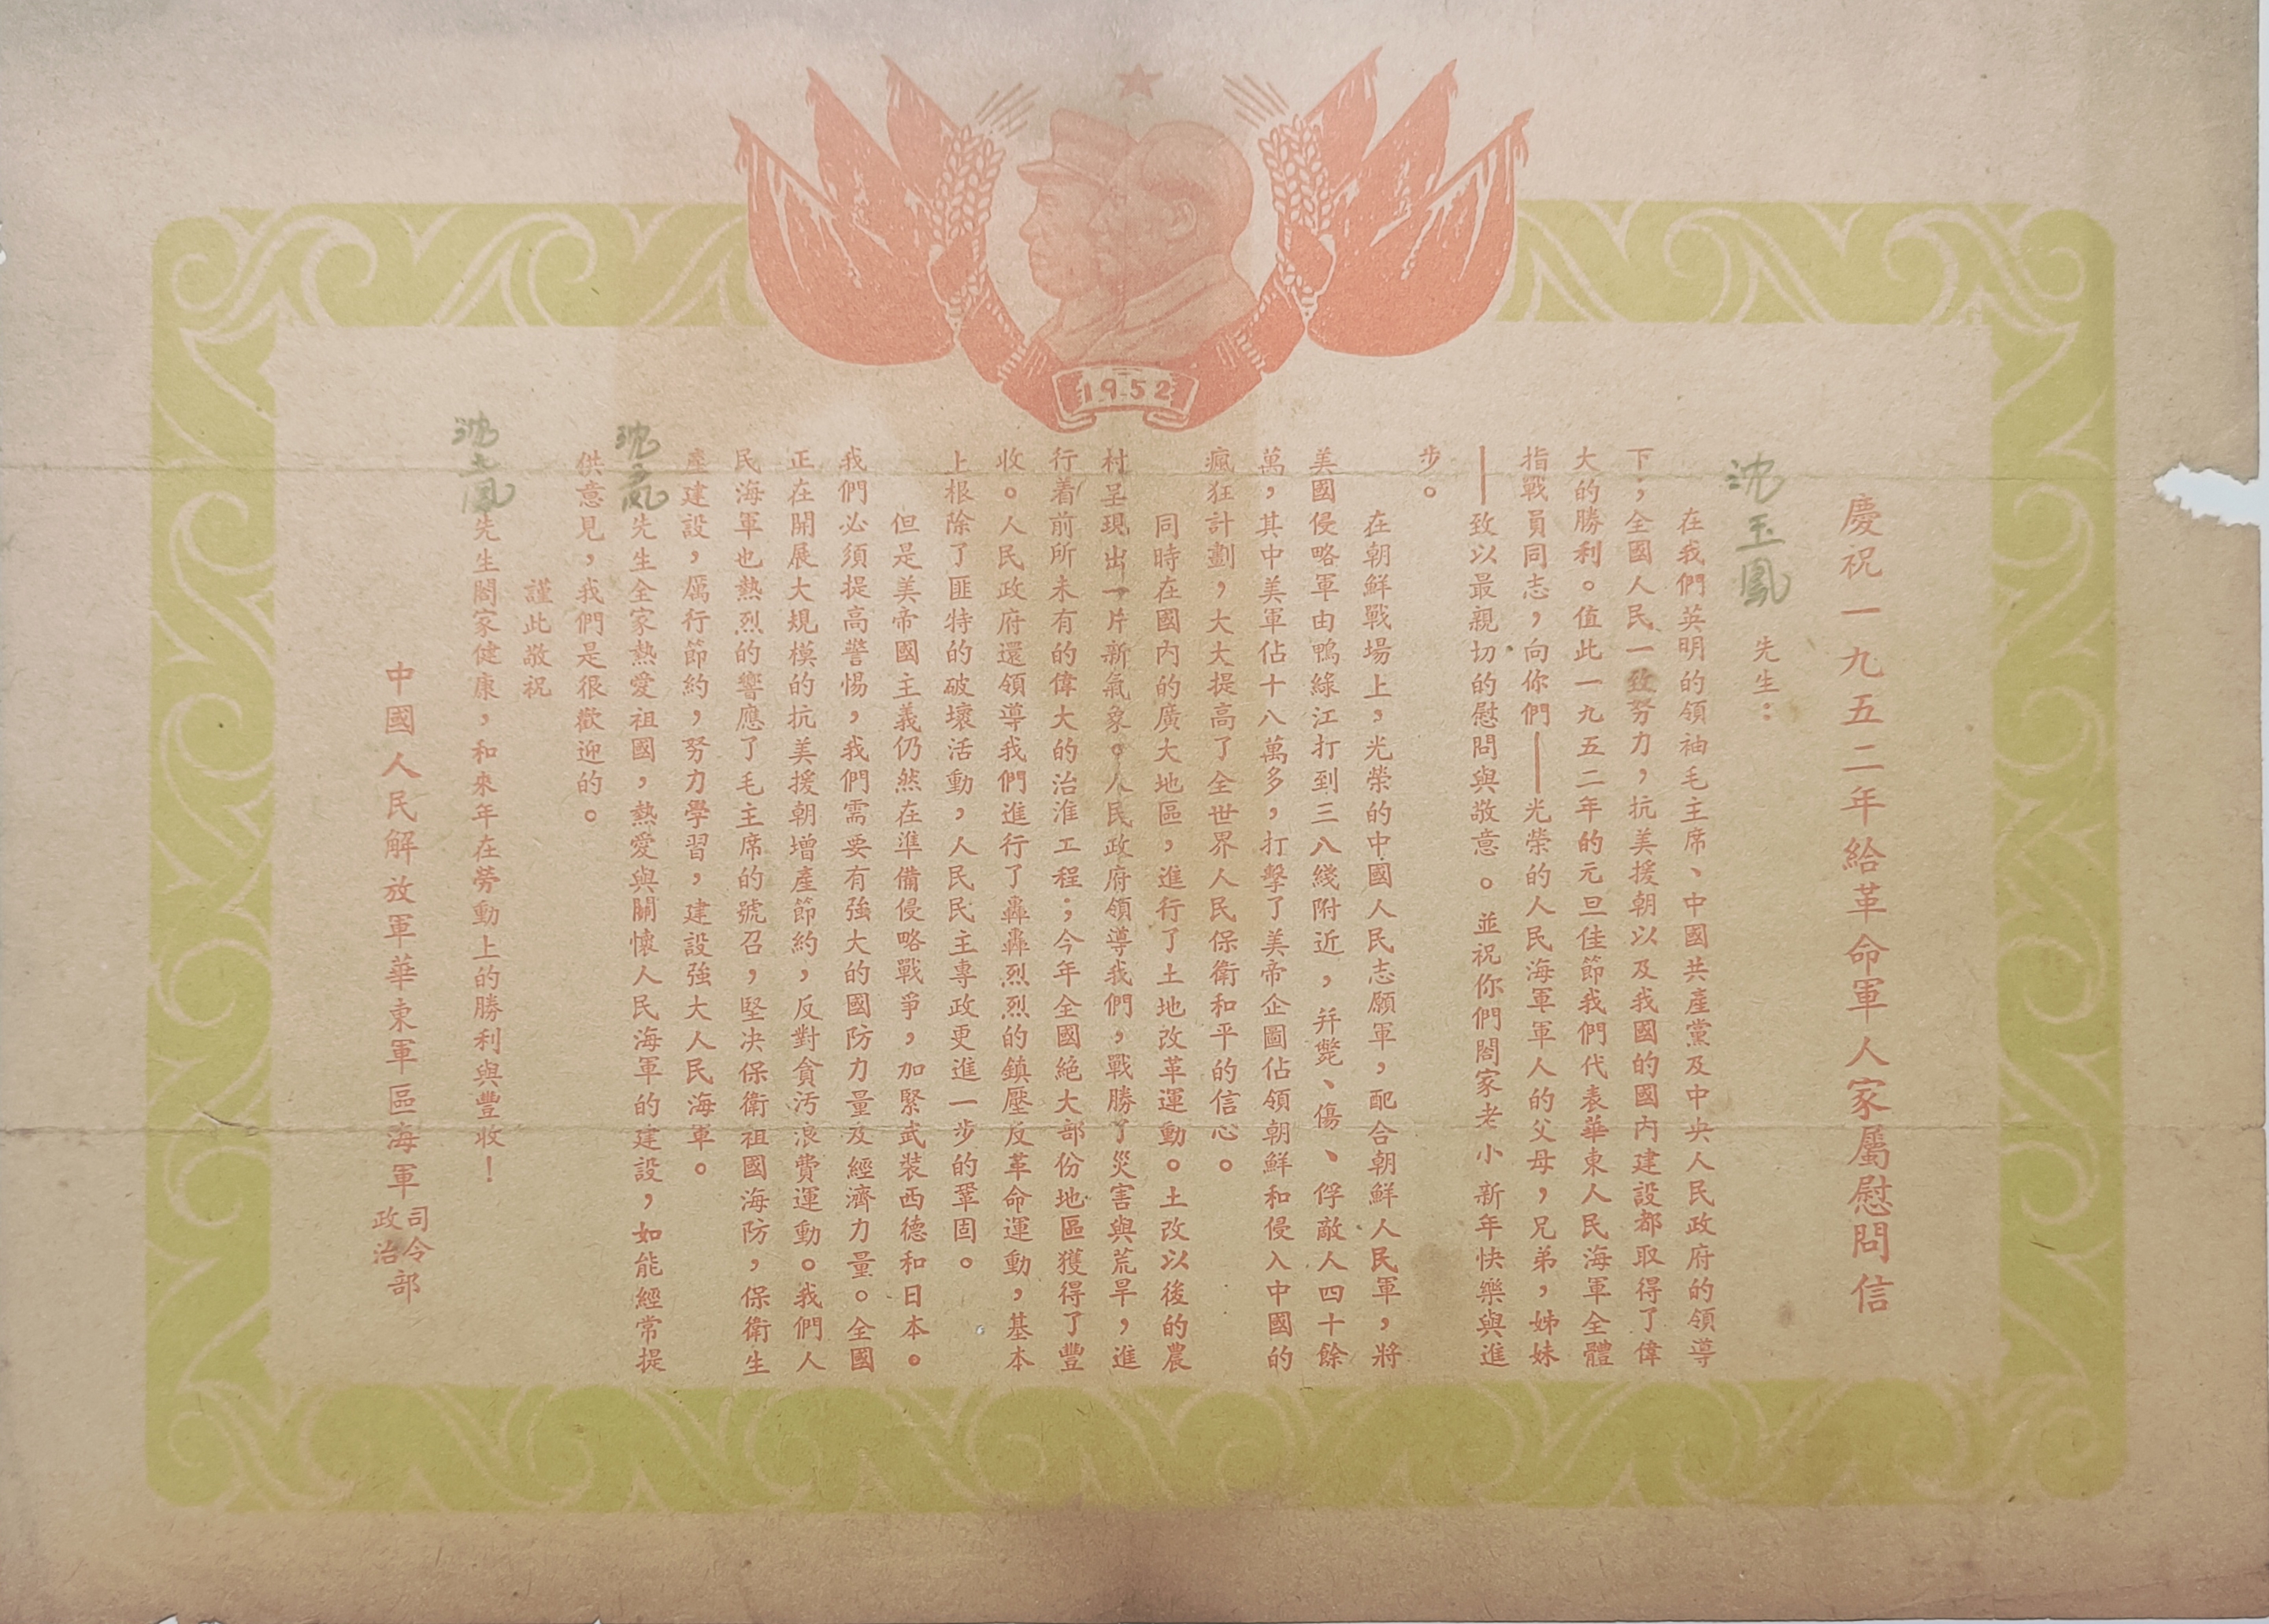 1952
慶祝一九五二年給革命軍人家屬慰問信
沈玉鳳 先生：
在我們英明的領袖毛主席、中國共產黨及中央人民政府的領導
下；全國人民一致努力，抗美援朝以及我國的國內建設都取得了偉
大的勝利。值此一九五二年的元旦佳節我們代表華東人民海軍全體
指戰員同志，向你們——光榮的人民海軍軍人的父母，兄弟，姊妹
——致以最親切的慰問與敬意。並祝你們閤家老小新年快樂與進
步。
在朝鮮戰場上，光榮的中國人民志願軍，配合朝鮮人民軍，將
美國侵略軍由鴨綠江打到三八綫附近，幷斃、傷、俘敵人四十餘
萬，其中美軍佔十八萬多，打擊了美帝企圖佔領朝鮮和侵入中國的
瘋狂計劃，大大提高了全世界人民保衛和平的信心。
同時在國內的廣大地區，進行了土地改革運動。土改以後的農
村呈現出一片新氣象。人民政府領導我們，戰勝了災害與荒旱，進
行着前所未有的偉大的治淮工程；今年全國絕大部份地區獲得了豐
收。人民政府還領導我們進行了轟轟烈烈的鎮壓反革命運動，基本
上根除了匪特的破壞活動，人民民主專政更進一步的鞏固。
但是美帝國主義仍然在準備侵略戰爭，加緊武裝西德和日本。
我們必須提高警惕，我們需要有強大的國防力量及經濟力量。全國
正在開展大規模的抗美援朝增產節約，反對貪汚浪費運動。我們人
民海軍也熱烈的響應了毛主席的號召，堅决保衛祖國海防，保衛生
產建設，厲行節約，努力學習，建設強大人民海軍。
沈玉鳳先生全家熱愛祖國，熱愛與關懷人民海軍的建設，如能經常提
供意見，我們是很歡迎的。
謹此敬祝
沈玉鳳先生閤家健康，和來年在勞動上的勝利與豐收！
中國人民解放軍華東軍區海軍司令政治部